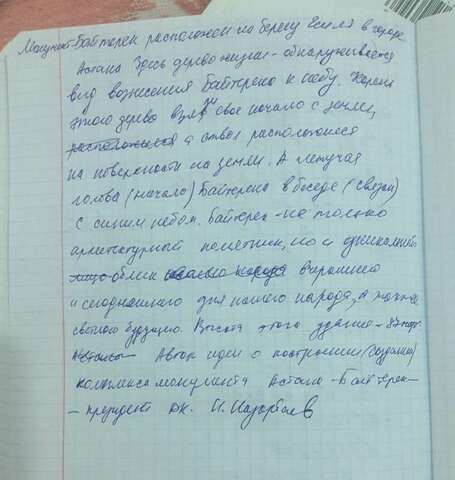 Монумент-Байтерек расположен на берегу Есиля в городе
Астана Здесь дерево жизни - обнаруживается
вид вознесения Байтерека к небу. Корени
этого дерево взял свое начало с земли,
расположился а ствол расположился
на поверхности на земли. А летучая
голова (начало) Байтерека в беседе (связи)
с синим небом. Байтерек - не только
архитектурный памятник, но и уникальный
лицо облик нашего народа вчерашнего
и сегодняшнего дня нашего народа, а также
светлого будущего. Высота этого здание - 97
Автор идеи о построении (создании)
комплекса монумента Астана - Байтерек -
- президент Н. Назарбаев